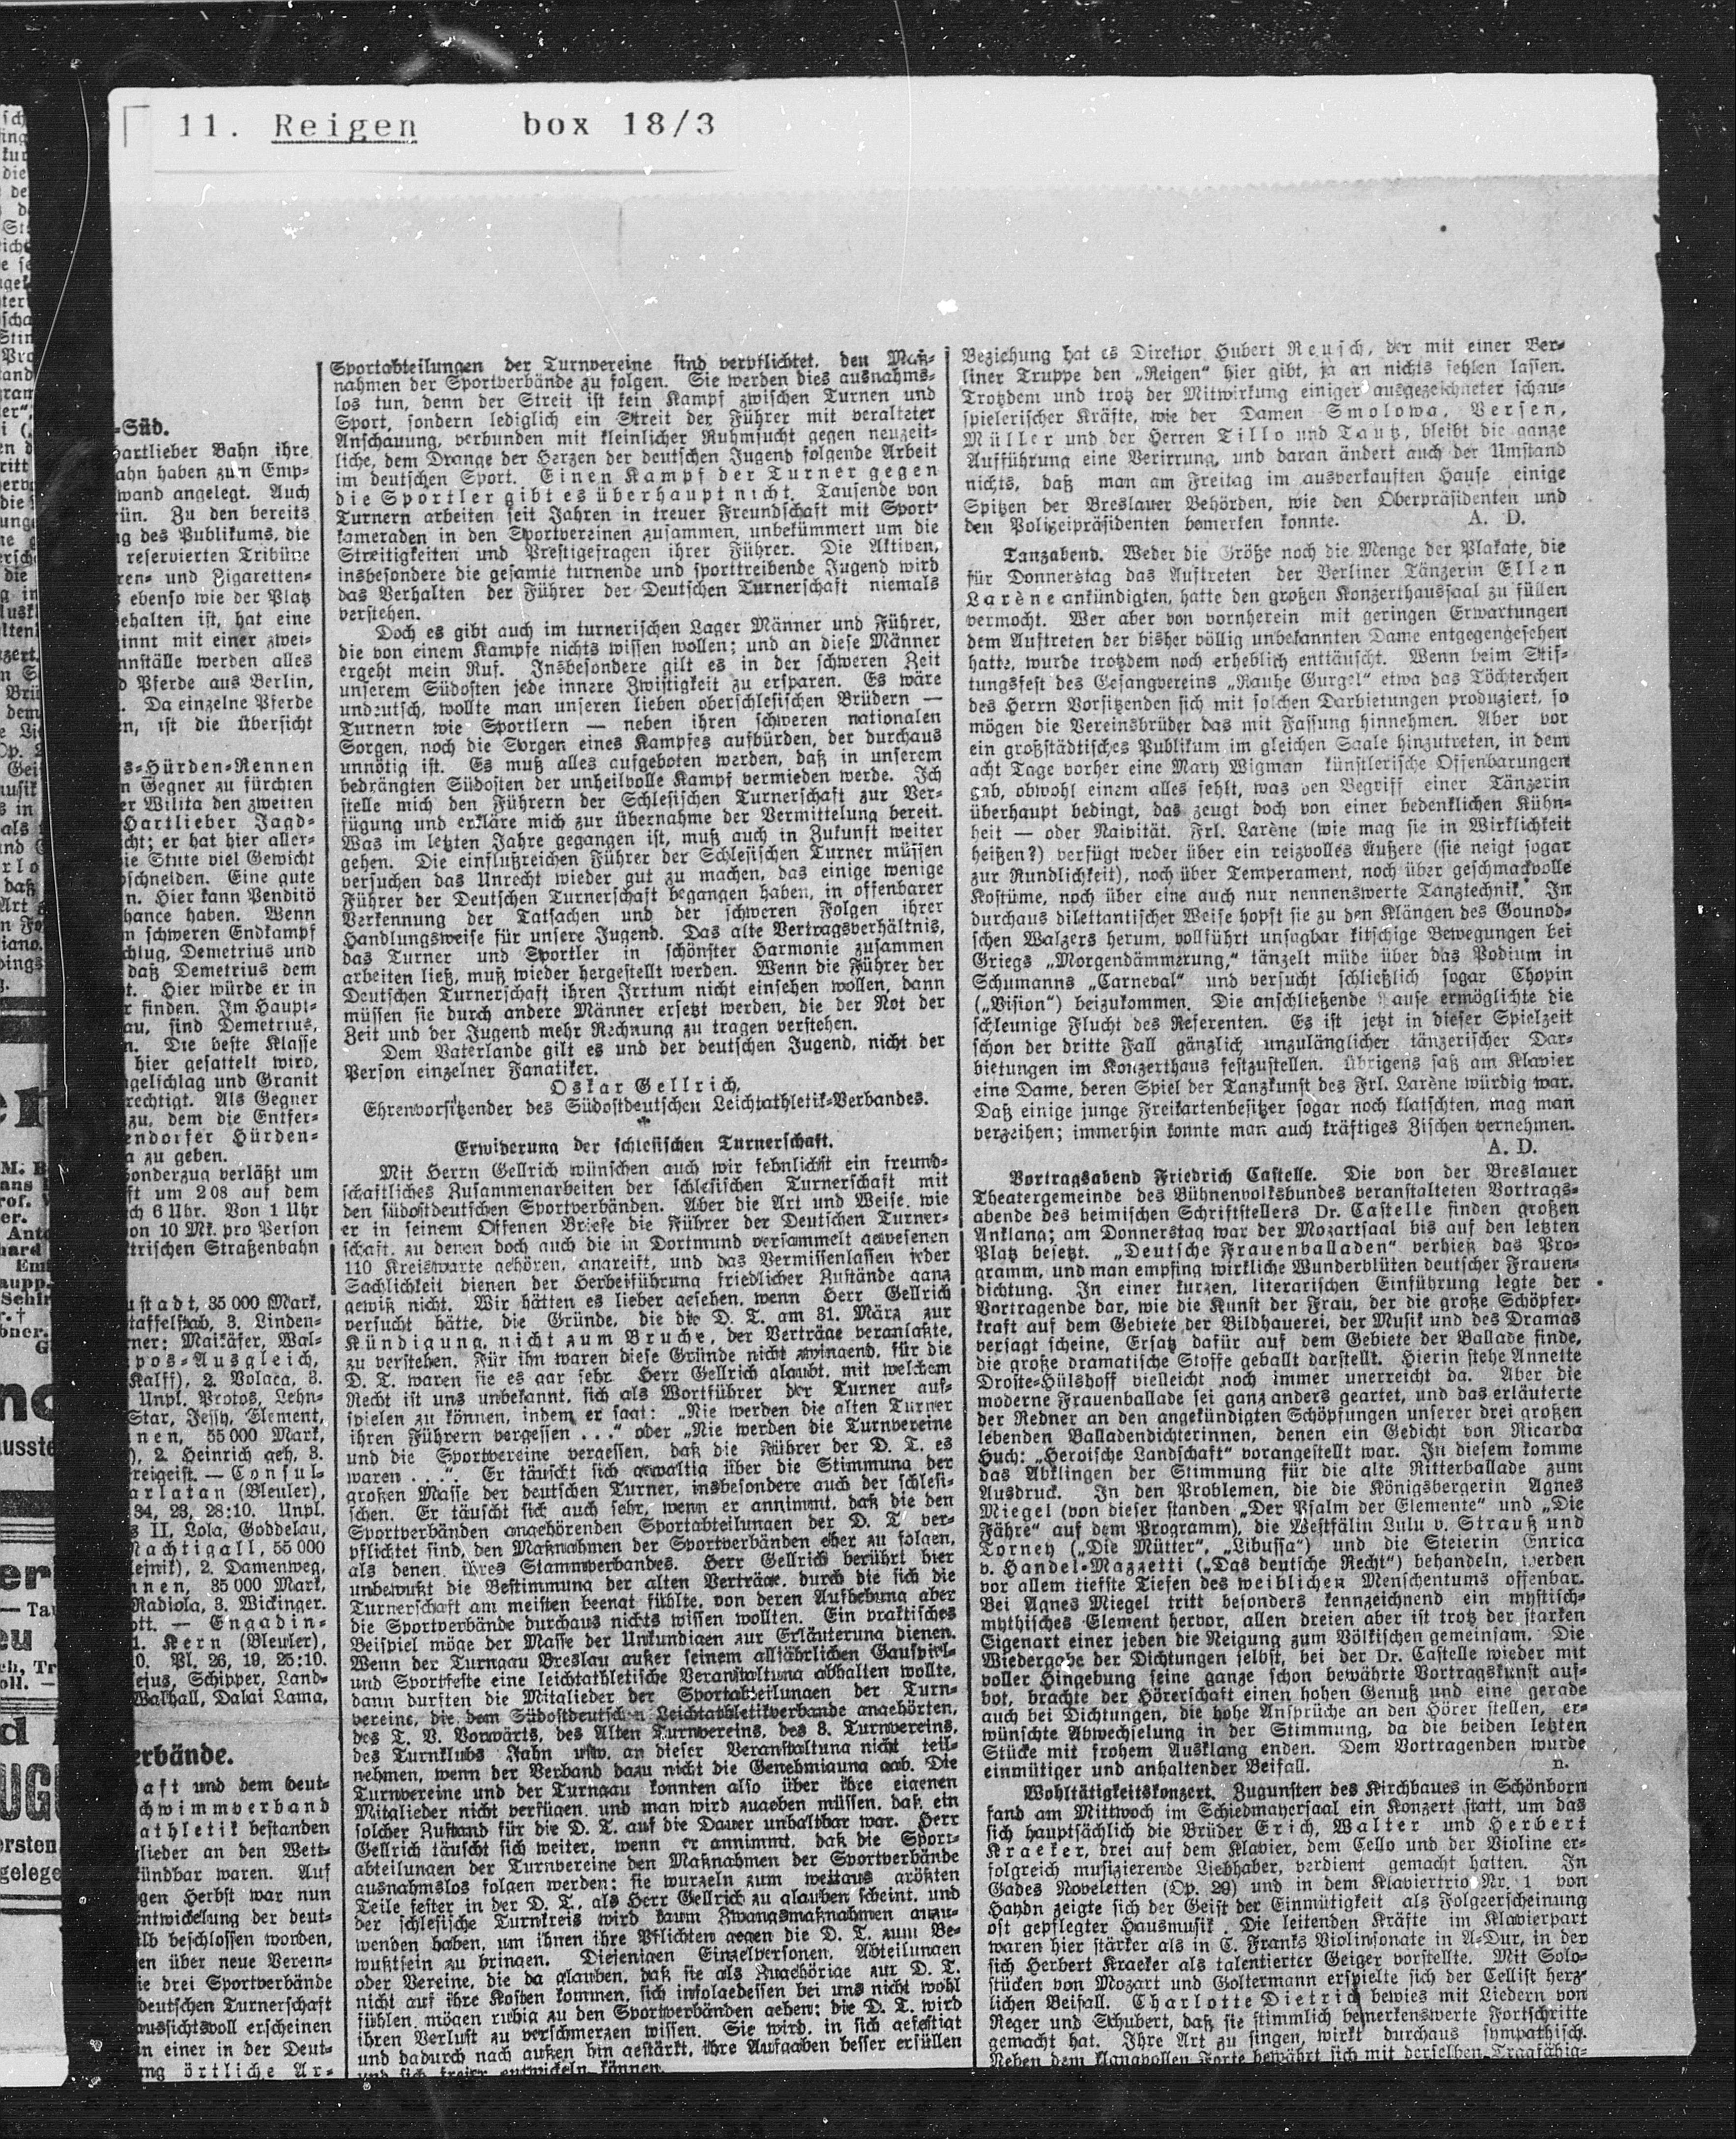 11. Reigen box 18/3
-Süd.
hartlieber Bahn ihre
ahn haben zum Emp-
wand angelegt. Auch
rün. Zu den bereits
g des Publikums, die
reservierten Tribüne
ren- und Zigaretten-
ebenso wie der Platz
ehalten ist, hat eine
innt mit einer zwei-
nnställe werden alles
Pferde aus Berlin,
. Da einzelne Pferde
en, ist die Übersicht
s-Hürden-Rennen
n Gegner zu fürchten
er Wilita den zweiten
Hartlieber Jagd-
cht; er hat hier aller-
ie Stute viel Gewicht
schneiden. Eine gute
n. Hier kann Penditö
hance haben. Wenn
m schweren Endkampf
chlug, Demetrius und
daß Demetrius dem
t. Hier würde er in
r finden. Im Haupt-
au, sind Demetrius,
n. Die beste Klasse
hier gesattelt wird,
gelschlag und Granit
rechtigt. Als Gegner
zu, dem die Entfer-
endorfer Hürden-
a zu geben.
onderzug verläßt um
ft um 2 08 auf dem
ch 6 Uhr. Von 1 Uhr
on 10 Mk. pro Person
trischen Straßenbahn
ustadt, 35 000 Mark,
taffelstab, 3. Linden-
rner: Maikäfer, Wal-
pos-Ausgleich,
Kalff), 2. Volaca, 3.
Unpl. Protos, Lehn-
Star, Jessy, Element,
nen, 55 000 Mark,
), 2. Heinrich geh, 3.
reigeist. — Consul-
arlatan (Bleuler),
34, 23, 28:10. Unpl.
s II, Lola, Goddelau,
Nachtigall, 55 000
ejnik), 2. Damenweg,
nnen, 35 000 Mark,
Radiola, 3. Wickinger.
ott. — Engadin-
1. Kern (Bleuler),
0. Pl. 26, 19, 25:10.
ejus, Schipper, Land-
Walhall, Dalai Lama,
erbände.
aft und dem Deut-
chwimmverband
athletik bestanden
lieder an den Wett-
kündbar waren. Auf
gen Herbst war nun
ntwickelung der deut-
lb beschlossen worden,
en über neue Verein-
ie drei Sportverbände
deutschen Turnerschaft
aussichtsvoll erscheinen
in einer in der Deut-
ung örtliche Ar-
Sportabteilungen der Turnvereine sind verpflichtet, den Maß-
nahmen der Sportverbände zu folgen. Sie werden dies ausnahms-
los tun, denn der Streit ist kein Kampf zwischen Turnen und
Sport, sondern lediglich ein Streit der Führer mit veralteter
Anschauung, verbunden mit kleinlicher Ruhmsucht gegen neuzeit-
liche, dem Drange der Herzen der deutschen Jugend folgende Arbeit
im deutschen Sport. Einen Kampf der Turner gegen
die Sportler gibt es überhaupt nicht. Tausende von
Turnern arbeiten seit Jahren in treuer Freundschaft mit Sport-
kameraden in den Sportvereinen zusammen, unbekümmert um die
Streitigkeiten und Prestigefragen ihrer Führer. Die Aktiven,
insbesondere die gesamte turnende und sporttreibende Jugend wird
das Verhalten der Führer der Deutschen Turnerschaft niemals
verstehen.
Doch es gibt auch im turnerischen Lager Männer und Führer,
die von einem Kampfe nichts wissen wollen; und an diese Männer
ergeht mein Ruf. Insbesondere gilt es in der schweren Zeit
unserem Südosten jede innere Zwistigkeit zu ersparen. Es wäre
undeutsch, wollte man unseren lieben oberschlesischen Brüdern —
Turnern wie Sportlern — neben ihren schweren nationalen
Sorgen, noch die Sorgen eines Kampfes aufbürden, der durchaus
unnötig ist. Es muß alles aufgeboten werden, daß in unserem
bedrängten Südosten der unheilvolle Kampf vermieden werde. Ich
stelle mich den Führern der Schlesischen Turnerschaft zur Ver-
fügung und erkläre mich zur Übernahme der Vermittelung bereit.
Was im letzten Jahre gegangen ist, muß auch in Zukunft weiter
gehen. Die einflußreichen Führer der Schlesischen Turner müssen
versuchen das Unrecht wieder gut zu machen, das einige wenige
Führer der Deutschen Turnerschaft begangen haben, in offenbarer
Verkennung der Tatsachen und der schweren Folgen ihrer
Handlungsweise für unsere Jugend. Das alte Vertragsverhältnis,
das Turner und Sportler in schönster Harmonie zusammen
arbeiten ließ, muß wieder hergestellt werden. Wenn die Führer der
Deutschen Turnerschaft ihren Irrtum nicht einsehen wollen, dann
müssen sie durch andere Männer ersetzt werden, die der Not der
Zeit und der Jugend mehr Rechnung zu tragen verstehen.
Dem Vaterlande gilt es und der deutschen Jugend, nicht der
Person einzelner Fanatiker.
Oskar Gellrich,
Ehrenvorsitzender des Südostdeutschen Leichtathletik-Verbandes.
Erwiderung der schlesischen Turnerschaft.
Mit Herrn Gellrich wünschen auch wir sehnlichst ein freund-
schaftliches Zusammenarbeiten der schlesischen Turnerschaft mit
den südostdeutschen Sportverbänden. Aber die Art und Weise, wie
er in seinem Offenen Briefe die Führer der Deutschen Turner-
schaft, zu denen doch auch die in Dortmund versammelt gewesenen
110 Kreiswarte gehören, angreift, und das Vermissenlassen jeder
Sachlichkeit dienen der Herbeiführung friedlicher Zustände ganz
gewiß nicht. Wir hätten es lieber gesehen, wenn Herr Gellrich
versucht hätte, die Gründe, die die D. T. am 31. März zur
Kündigung, nicht zum Bruche, der Verträge veranlaßte,
zu verstehen. Für ihn waren diese Gründe nicht zwingend, für die
D. T. waren sie es gar sehr. Herr Gellrich glaubt, mit welchem
Recht ist uns unbekannt, sich als Wortführer der Turner auf-
spielen zu können, indem er sagt: „Nie werden die alten Turner
ihren Führern vergessen . . .“ oder „Nie werden die Turnvereine
und die Sportvereine vergessen, daß die Führer der D. T. es
waren . . .“. Er täuscht sich gewaltig über die Stimmung der
großen Masse der deutschen Turner, insbesondere auch der schlesi-
schen. Er täuscht sich auch sehr, wenn er annimmt, daß die den
Sportverbänden angehörenden Sportabteilungen der D. T. ver-
pflichtet sind, den Maßnahmen der Sportverbänden eher zu folgen,
als denen ihres Stammverbandes. Herr Gellrich berührt hier
unbewußt die Bestimmung der alten Verträge, durch die sich die
Turnerschaft am meisten beengt fühlte, von deren Aufhebung aber
die Sportverbände durchaus nichts wissen wollten. Ein praktisches
Beispiel möge der Masse der Unkundigen zur Erläuterung dienen.
Wenn der Turngau Breslau außer seinem alljährlichen Gauspiel-
und Sportfeste eine leichtathletische Veranstaltung abhalten wollte,
dann durften die Mitglieder der Sportabteilungen der Turn-
vereine, die dem Südostdeutschen Leichtathletikverbande angehörten,
des T. V. Vorwärts, des Alten Turnvereins, des 3. Turnvereins,
des Turnklubs Jahn usw. an dieser Veranstaltung nicht teil-
nehmen, wenn der Verband dazu nicht die Genehmigung gab. Die
Turnvereine und der Turngau konnten also über ihre eigenen
Mitglieder nicht verfügen, und man wird zugeben müssen, daß ein
solcher Zustand für die D. T. auf die Dauer unhaltbar war. Herr
Gellrich täuscht sich weiter, wenn er annimmt, daß die Sport-
abteilungen der Turnvereine den Maßnahmen der Sportverbände
ausnahmslos folgen werden; sie wurzeln zum weitaus größten
Teile fester in der D. T., als Herr Gellrich zu glauben scheint, und
der schlesische Turnkreis wird kaum Zwangsmaßnahmen anzu-
wenden haben, um ihnen ihre Pflichten gegen die D. T. zum Be-
wußtsein zu bringen. Diejenigen Einzelpersonen, Abteilungen
oder Vereine, die da glauben, daß sie als Zugehörige zur D. T.
nicht auf ihre Kosten kommen, sich infolgedessen bei uns nicht wohl
fühlen, mögen ruhig zu den Sportverbänden gehen; die D. T. wird
ihren Verlust zu verschmerzen wissen. Sie wird, in sich gefestigt
und dadurch nach außen hin gestärkt, ihre Aufgaben besser erfüllen
und sich freier entwickeln können.
Beziehung hat es Direktor Hubert Reusch, der mit einer Ber-
liner Truppe den „Reigen“ hier gibt, ja an nichts fehlen lassen.
Trotzdem und trotz der Mitwirkung einiger ausgezeichneter schau-
spielerischer Kräfte, wie der Damen Smolowa, Versen,
Müller und der Herren Tillo und Tautz, bleibt die ganze
Aufführung eine Verirrung, und daran ändert auch der Umstand
nichts, daß man am Freitag im ausverkauften Hause einige
Spitzen der Breslauer Behörden, wie den Oberpräsidenten und
den Polizeipräsidenten bemerken konnte. A. D.
Tanzabend. Weder die Größe noch die Menge der Plakate, die
für Donnerstag das Auftreten der Berliner Tänzerin Ellen
Larène ankündigten, hatte den großen Konzerthaussaal zu füllen
vermocht. Wer aber von vornherein mit geringen Erwartungen
dem Auftreten der bisher völlig unbekannten Dame entgegengesehen
hatte, wurde trotzdem noch erheblich enttäuscht. Wenn beim Stif-
tungsfest des Gesangvereins „Rauhe Gurgel“ etwa das Töchterchen
des Herrn Vorsitzenden sich mit solchen Darbietungen produziert, so
mögen die Vereinsbrüder das mit Fassung hinnehmen. Aber vor
ein großstädtisches Publikum im gleichen Saale hinzutreten, in dem
acht Tage vorher eine Mary Wigman künstlerische Offenbarungen
gab, obwohl einem alles fehlt, was den Begriff einer Tänzerin
überhaupt bedingt, das zeugt doch von einer bedenklichen Kühn-
heit — oder Naivität. Frl. Larène (wie mag sie in Wirklichkeit
heißen?) verfügt weder über ein reizvolles Äußere (sie neigt sogar
zur Rundlichkeit), noch über Temperament, noch über geschmackvolle
Kostüme, noch über eine auch nur nennenswerte Tanztechnik. In
durchaus dilettantischer Weise hopst sie zu den Klängen des Gounod-
schen Walzers herum, vollführt unsagbar kitschige Bewegungen bei
Griegs „Morgendämmerung,“ tänzelt müde über das Podium in
Schumanns „Carneval“ und versucht schließlich sogar Chopin
(„Vision“) beizukommen. Die anschließende Pause ermöglichte die
schleunige Flucht des Referenten. Es ist jetzt in dieser Spielzeit
schon der dritte Fall gänzlich unzulänglicher tänzerischer Dar-
bietungen im Konzerthaus festzustellen. Übrigens saß am Klavier
eine Dame, deren Spiel der Tanzkunst des Frl. Larène würdig war.
Daß einige junge Freikartenbesitzer sogar noch klatschten, mag man
verzeihen; immerhin konnte man auch kräftiges Zischen vernehmen.
A. D.
Vortragsabend Friedrich Castelle. Die von der Breslauer
Theatergemeinde des Bühnenvolksbundes veranstalteten Vortrags-
abende des heimischen Schriftstellers Dr. Castelle finden großen
Anklang; am Donnerstag war der Mozartsaal bis auf den letzten
Platz besetzt. „Deutsche Frauenballaden“ verhieß das Pro-
gramm, und man empfing wirkliche Wunderblüten deutscher Frauen-
dichtung. In einer kurzen, literarischen Einführung legte der
Vortragende dar, wie die Kunst der Frau, der die große Schöpfer-
kraft auf dem Gebiete der Bildhauerei, der Musik und des Dramas
versagt scheine, Ersatz dafür auf dem Gebiete der Ballade finde,
die große dramatische Stoffe geballt darstellt. Hierin stehe Annette
Droste-Hülshoff vielleicht noch immer unerreicht da. Aber die
moderne Frauenballade sei ganz anders geartet, und das erläuterte
der Redner an den angekündigten Schöpfungen unserer drei großen
lebenden Balladendichterinnen, denen ein Gedicht von Ricarda
Huch: „Heroische Landschaft“ vorangestellt war. In diesem komme
das Abklingen der Stimmung für die alte Ritterballade zum
Ausdruck. In den Problemen, die die Königsbergerin Agnes
Miegel (von dieser standen „Der Psalm der Elemente“ und „Die
Fähre“ auf dem Programm), die Westfälin Lulu v. Strauß und
Torney („Die Mütter“, „Libussa“) und die Steierin Enrica
v. Handel-Mazzetti („Das deutsche Recht“) behandeln, werden
vor allem tiefste Tiefen des weiblichen Menschentums offenbar.
Bei Agnes Miegel tritt besonders kennzeichnend ein mystisch-
mythisches Element hervor, allen dreien aber ist trotz der starken
Eigenart einer jeden die Neigung zum Völkischen gemeinsam. Die
Wiedergabe der Dichtungen selbst, bei der Dr. Castelle wieder mit
voller Hingebung seine ganze schon bewährte Vortragskunst auf-
bot, brachte der Hörerschaft einen hohen Genuß und eine gerade
auch bei Dichtungen, die hohe Ansprüche an den Hörer stellen, er-
wünschte Abwechselung in der Stimmung, da die beiden letzten
Stücke mit frohem Ausklang enden. Dem Vortragenden wurde
einmütiger und anhaltender Beifall. n.
Wohltätigkeitskonzert. Zugunsten des Kirchbaues in Schönborn
fand am Mittwoch im Schiedmayersaal ein Konzert statt, um das
sich hauptsächlich die Brüder Erich, Walter und Herbert
Kraeker, drei auf dem Klavier, dem Cello und der Violine er-
folgreich musizierende Liebhaber, verdient gemacht hatten. In
Gades Noveletten (Op. 29) und in dem Klaviertrio Nr. 1 von
Haydn zeigte sich der Geist der Einmütigkeit als Folgeerscheinung
oft gepflegter Hausmusik. Die leitenden Kräfte im Klavierpart
waren hier stärker als in C. Franks Violinsonate in A-Dur, in der
sich Herbert Kraeker als talentierter Geiger vorstellte. Mit Solo-
stücken von Mozart und Goltermann erspielte sich der Cellist herz-
lichen Beifall. Charlotte Dietrich bewies mit Liedern von
Reger und Schubert, daß sie stimmlich bemerkenswerte Fortschritte
gemacht hat. Ihre Art zu singen, wirkt durchaus sympathisch.
Neben dem klangvollen Forte bewährt sich mit derselben Tragfähig-